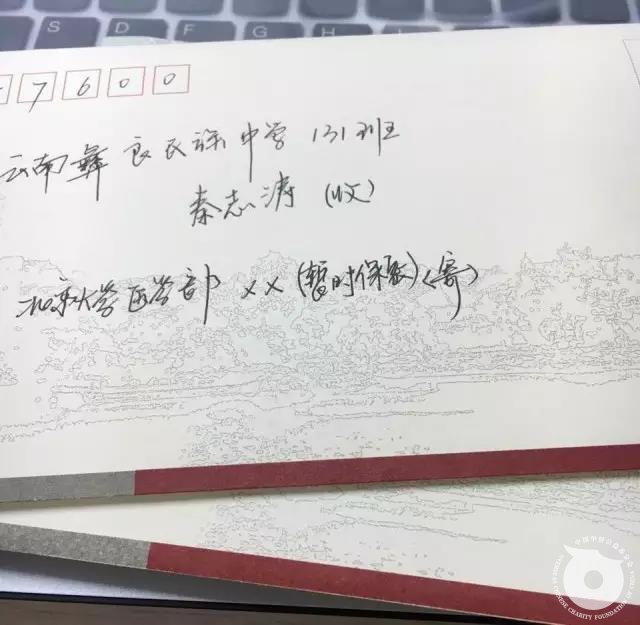 7600
云南彝良民族中学 131班
秦志涛 (收)
北京大学医学部 ×× (暂时保密) (寄)
中国华侨公益基金会